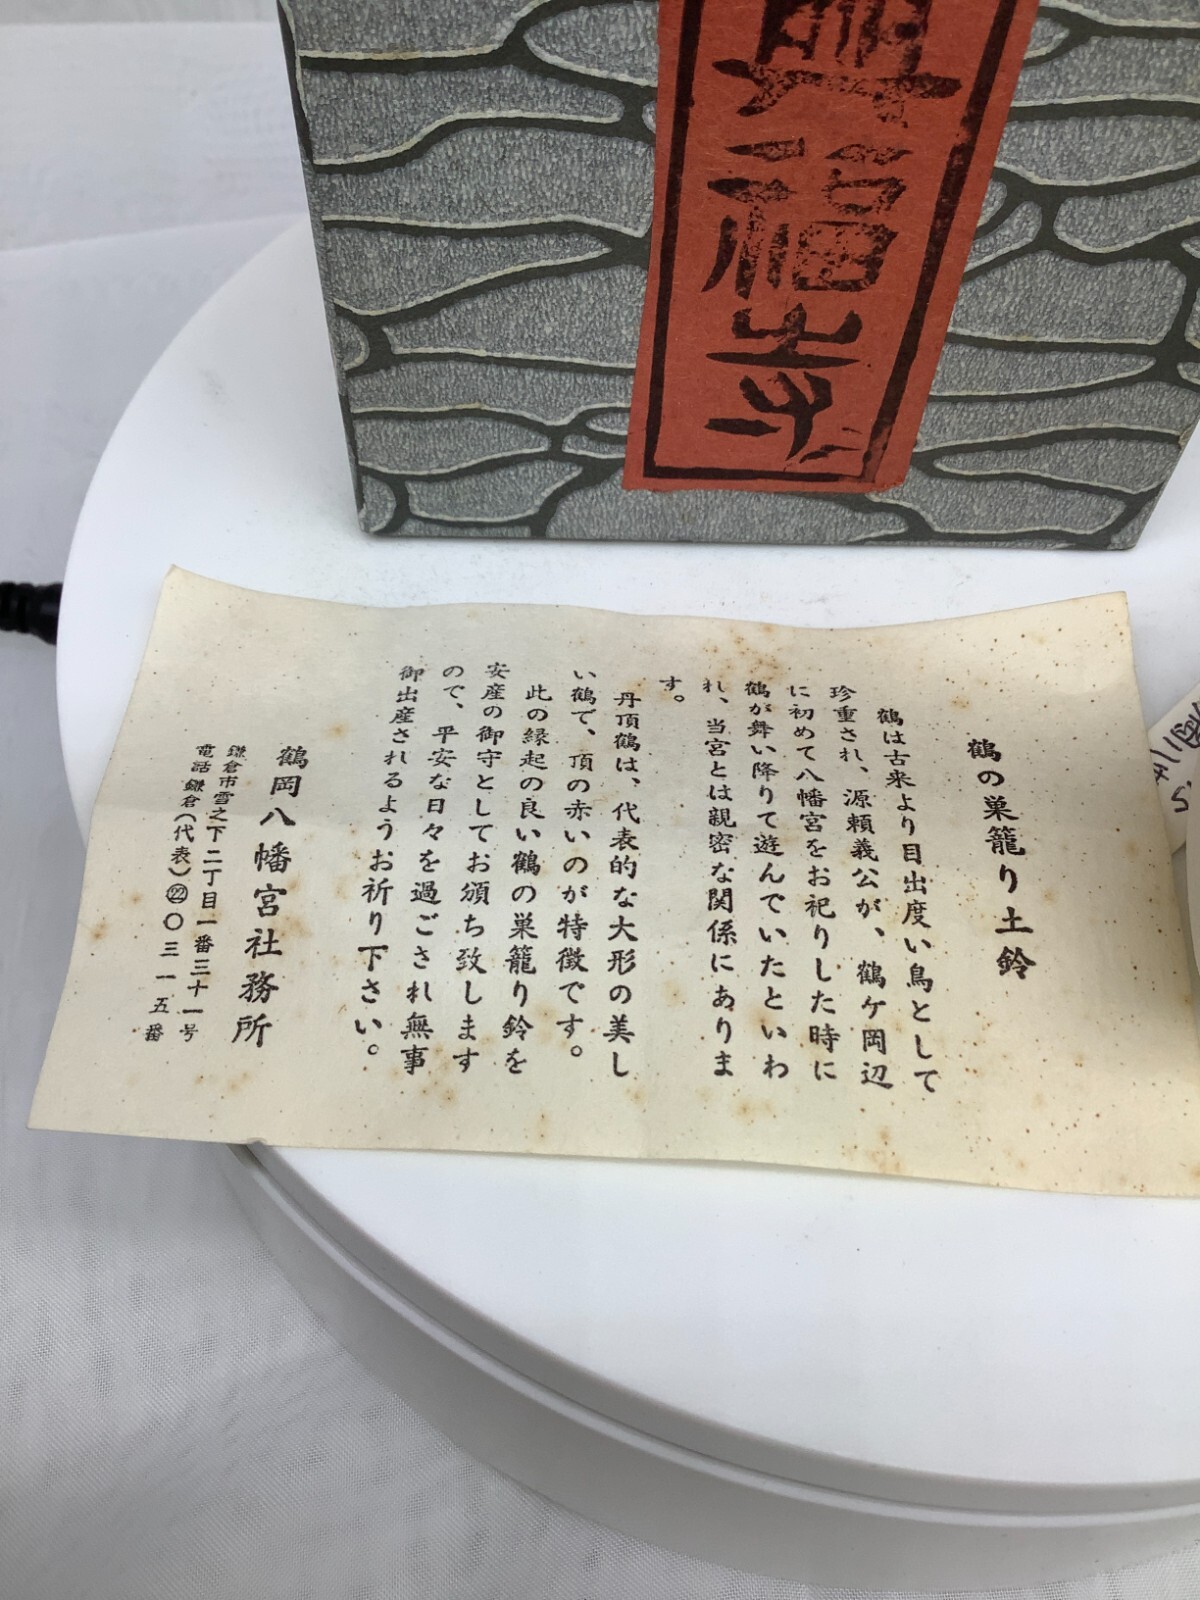 福
鶴の巣籠り土鈴
鶴は古来より目出度い鳥として
珍重され、源頼義公が、鶴ケ岡辺
に初めて八幡宮をお祀りした時に
鶴が舞い降りて遊んでいたといわ
れ、当宮とは親密な関係にありま
す。
丹頂鶴は、代表的な大形の美し
い鶴で、頂の赤いのが特徴です。
此の縁起の良い鶴の巣籠り鈴を
安産の御守としてお頒ち致します
ので、平安な日々を過ごされ無事
御出産されるようお祈り下さい。
鶴岡八幡宮社務所
鎌倉市雪之下二丁目一番三十一号
電話 鎌倉(代表)㉒〇三一五番